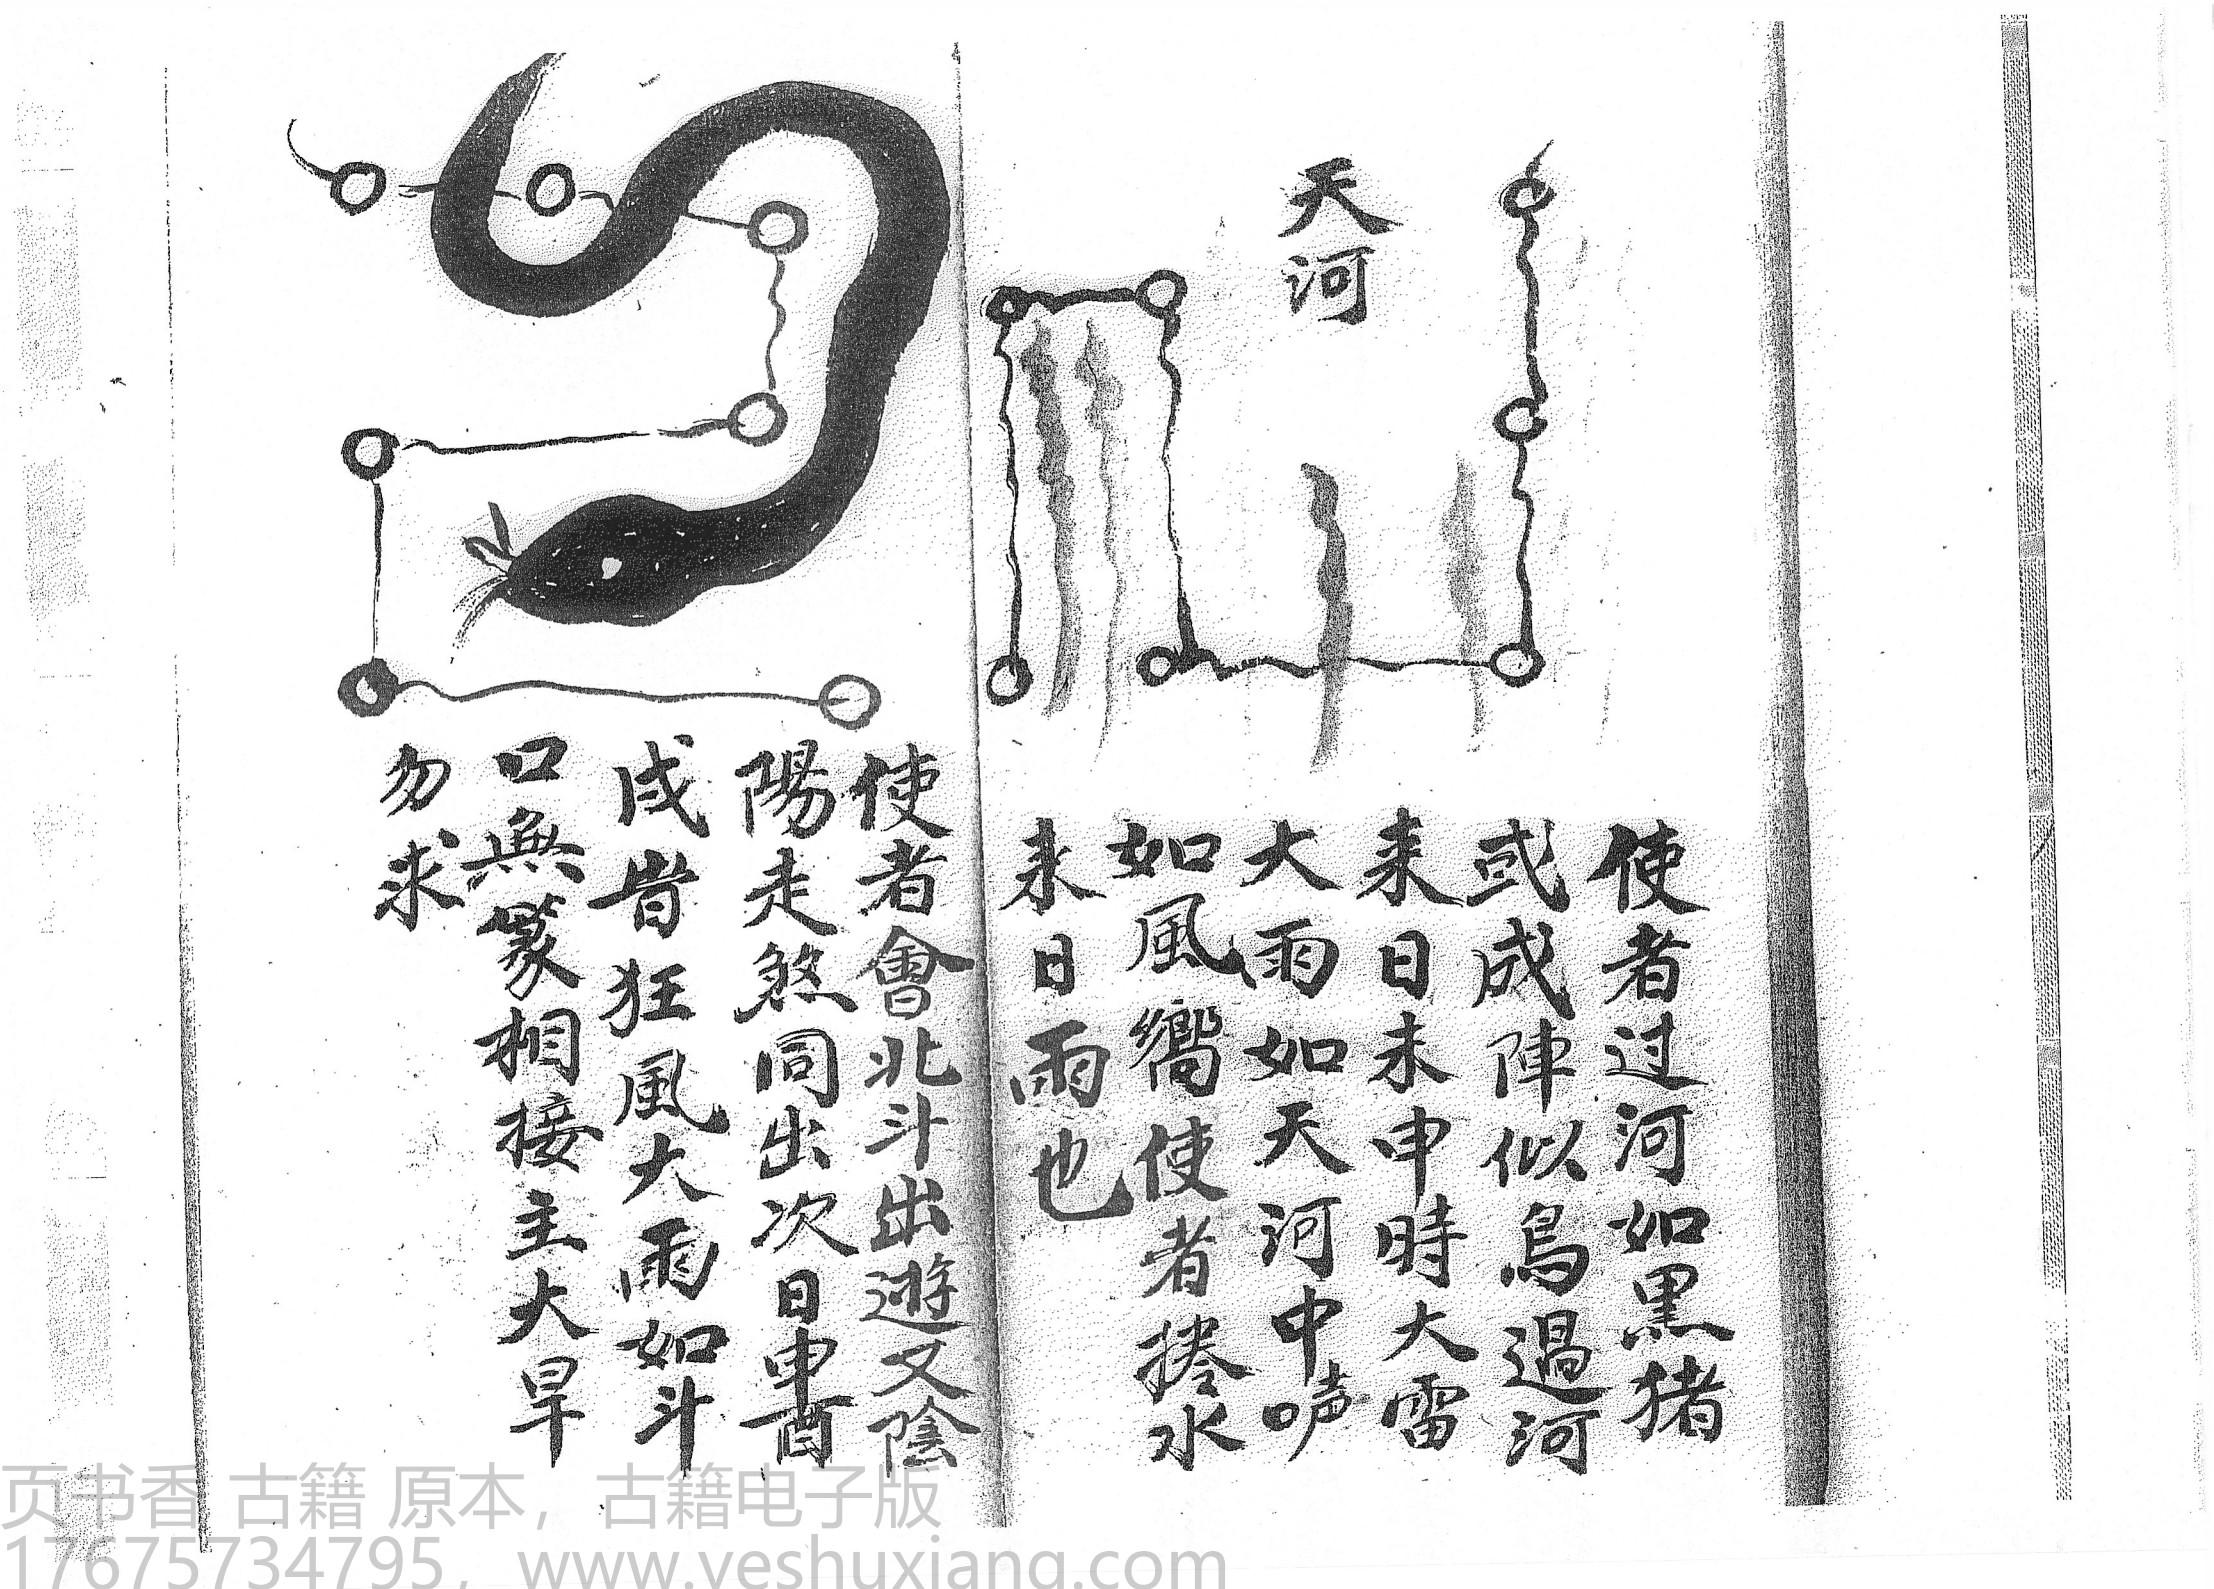 天河
使者过河如黑猪
或成陣似鳥過河
来日未申時大雷
大雨如天河中声
如風嚮使者捲水
来日雨也
使者會北斗出遊又陰
陽走煞同出次日申酉
戌時狂風大雨如斗
口無篆相接主大旱
勿求
页书香 古籍 原本，古籍电子版
17675734795，www.yeshuxiang.com